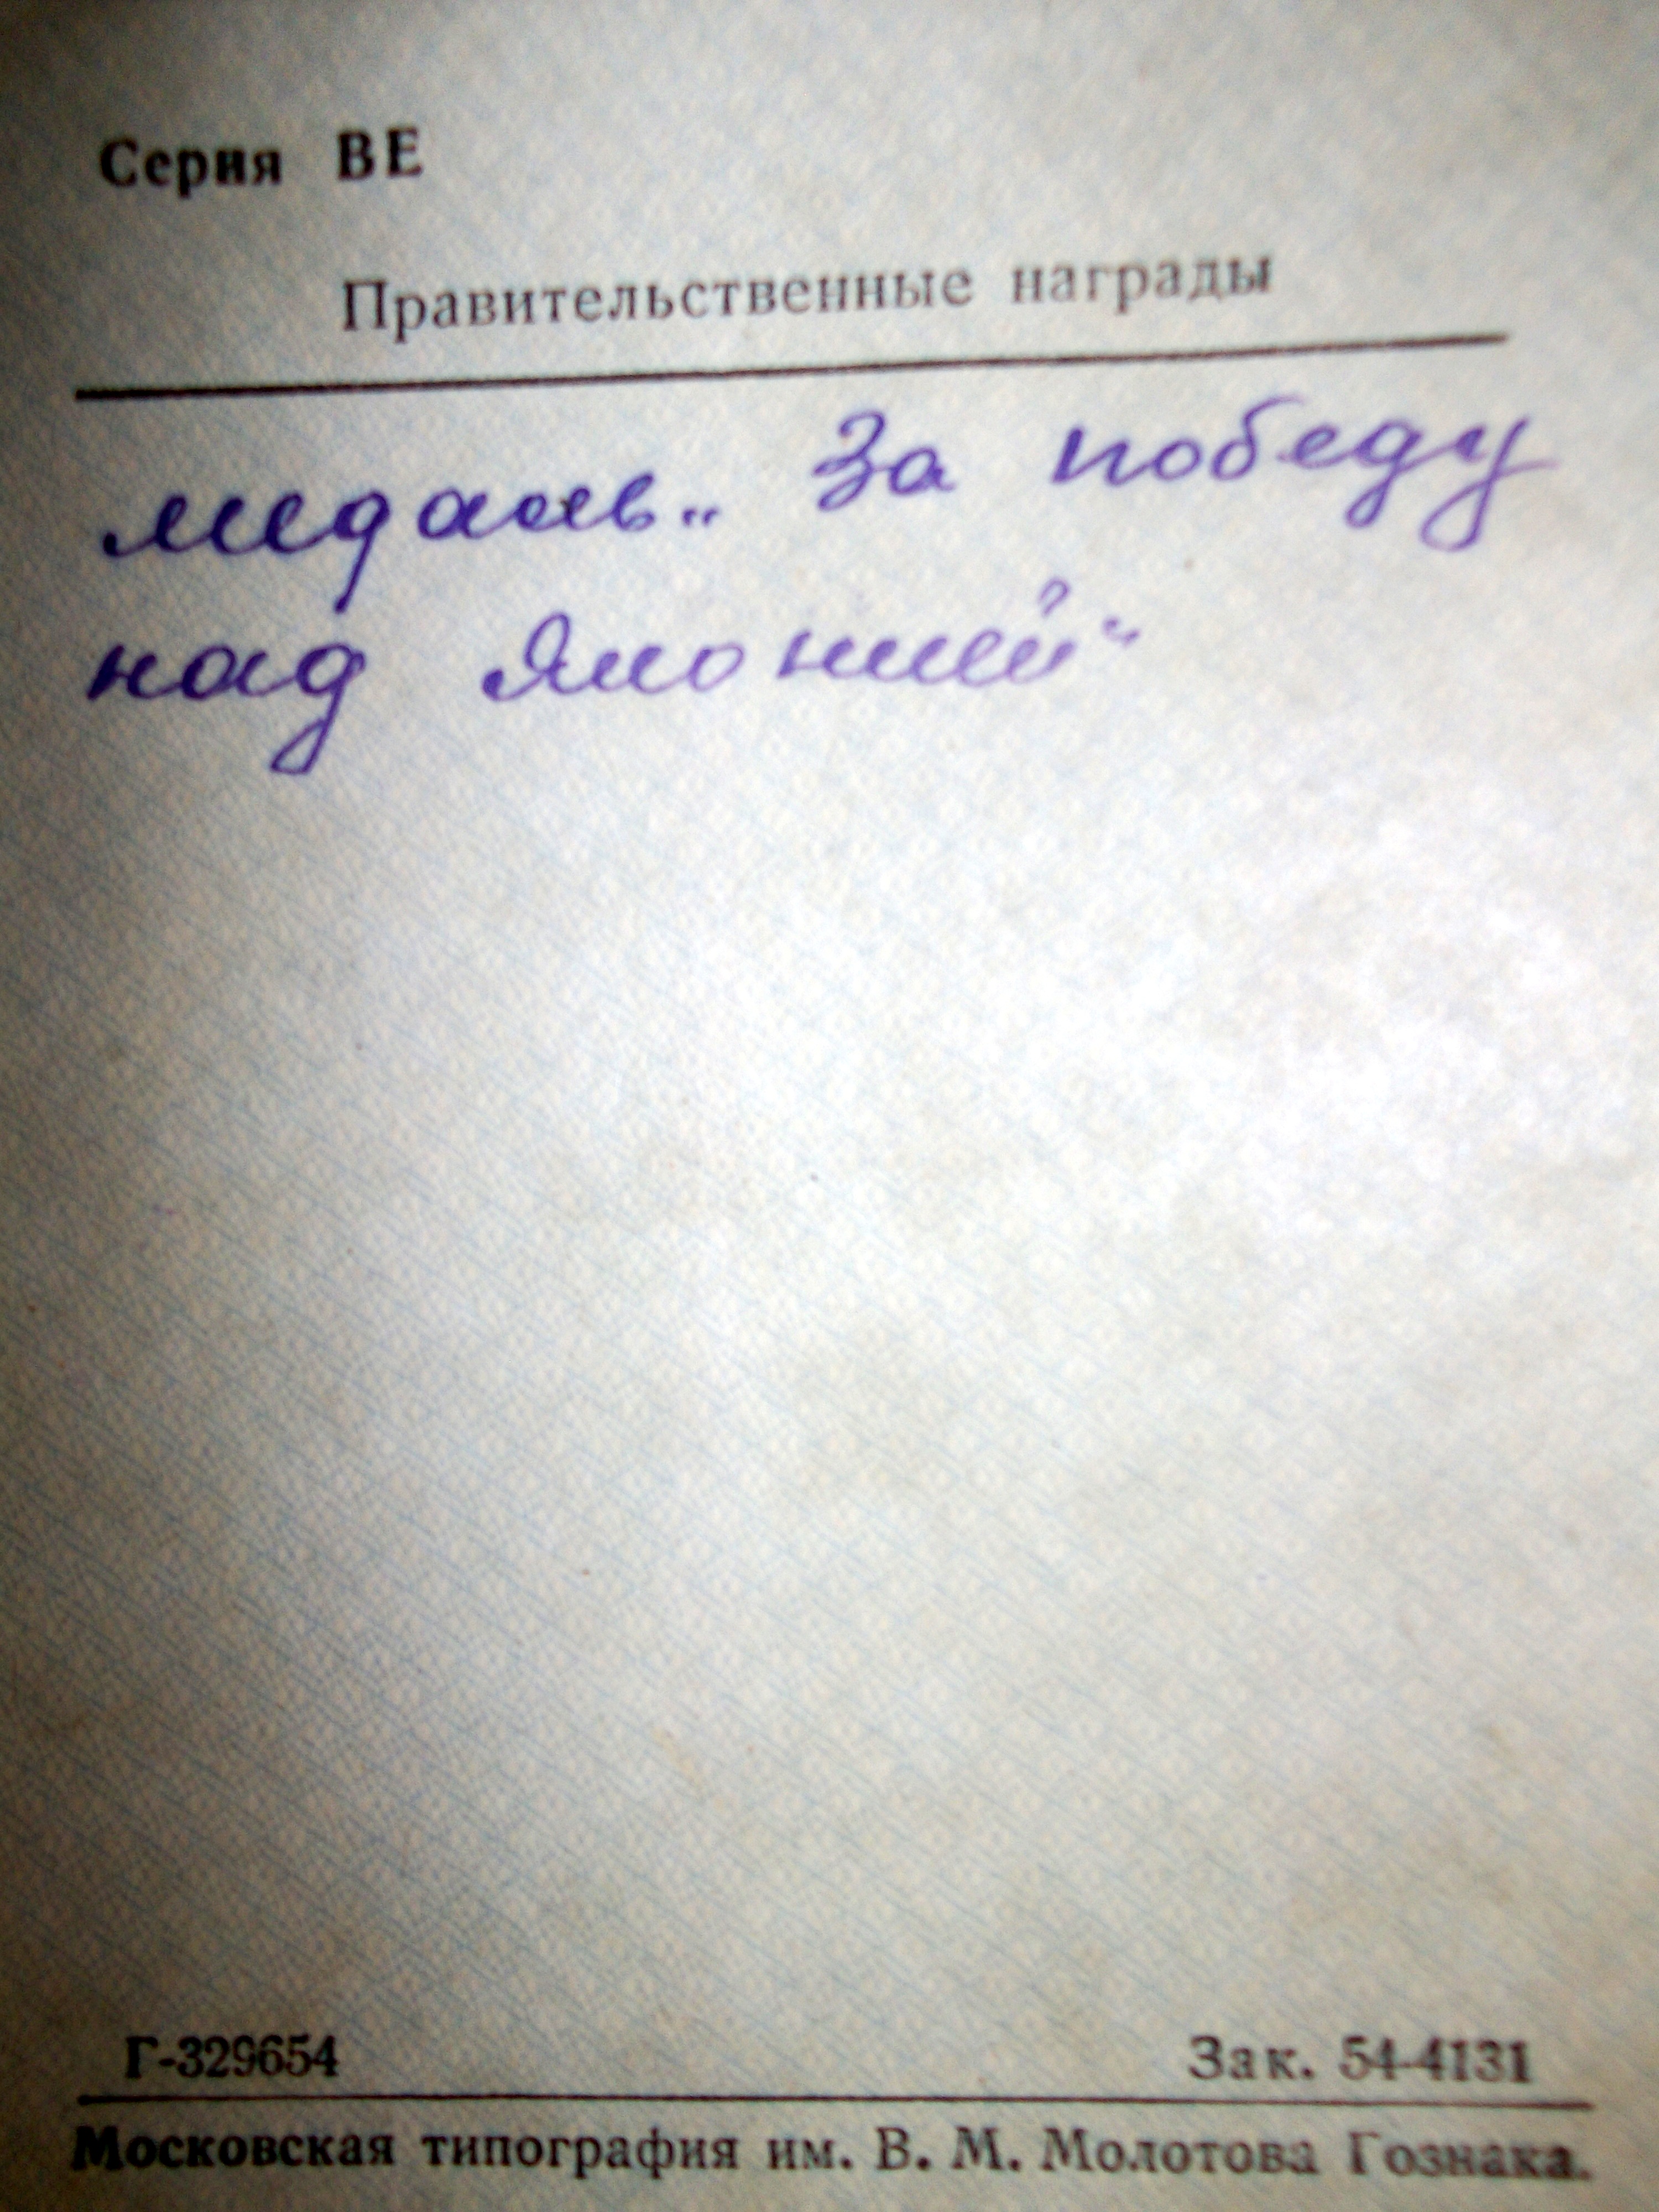 Серия ВЕ
Правительственные награды
медаль „ За победу
над Японией“
Г-329654
Зак. 54-4131
Московская типография им. В. М. Молотова Гознака.